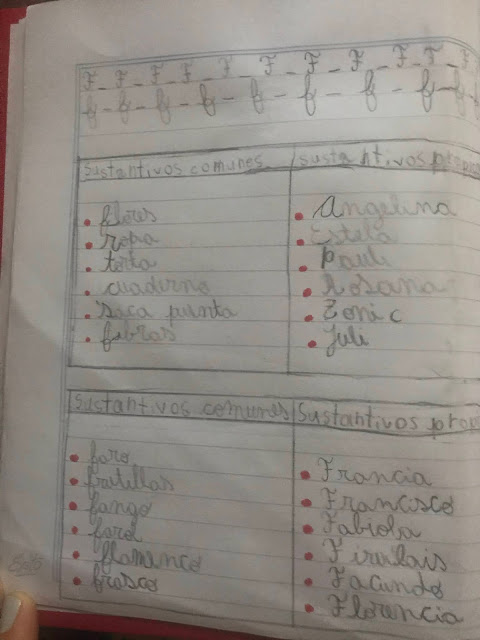 F - F - F - F - F - F - F - F - F - F - F
f - f - f - f - f - f - f - f - f
sustantivos comunes sustantivos propio
• flores • Angelina
• ropa • Estela
• torta • Pauli
• cuaderno • Rosana
• saca punta
• fibras • Juli
sustantivos comunes sustantivos propi
• faro • Francia
• frutillas • Francisco
• fango • Fabiola
• farol • Firulais
• flamenco • Facundo
• frasco • Florencia